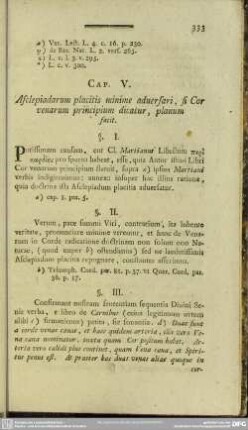 333
a) Var. Lect. L. 4. c. 16. p. 230.
y) de Rer. Nat. L. 3. vers. 263.
z) L. c. l. 3. v. 295.
*) L. c. v. 300.
CAP. V.
Asclepiadarum placitis minime adversari, si Cor
venarum principium dicatur, planum
facit.
§. I.
Potissimam causam, cur Cl. Martianus Libellum περὶ
καρδίης pro spurio habent, esse, quia Autor istius Libri
Cor venarum principium statuit, supra a) ipsius Martiani
verbis indigitavimus: autem: insuper hac illius ratione,
quia doctrina ista Asclepiadum placitis adversatur.
a) cap. 2. pos. 5.
§. II.
Verum, pace summi Viri, contrarium, ita iubente
veritate, pronunciare minime veremur, et hanc de Venarum
in Corde radicatione doctrinam non solum non Naturae,
(quod nuper b) ostendimus) sed ne laudatissimis
Asclepiadum placitis repugnare, constanter asserimus.
b) Triumph. Cord. pos. 81. p. 37. et Quer. Cord. pos.
36. p. 17.
§. III.
Confirmant nostram sententiam sequentia Divini Senis
verba, e libro de Carnibus (cuius legitimum ortum
alibi c) firmavimus) petita, sic sonantia. d) Duae sunt
a corde venae cavae, et haec quidem arteria, illa vero Vena
cava nominatur, iuxta quam Cor positum habet. Arteria
vero calidi plus continet, quam Vena cava, et Spiritus
penus est. & praeter has duas venas aliae quoque in
cor-